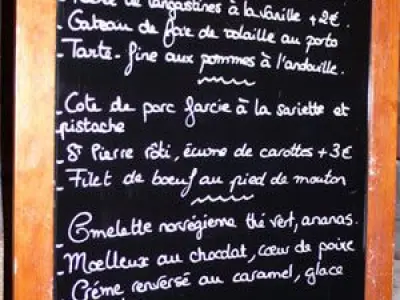 de langoustines à la vanille + 2€.
- Gateau de foie de volaille au porto
- Tarte-fine aux pommes à l'andouille.
- Cote de porc farcie à la sariette et
pistache
- St Pierre rôti, écume de carottes + 3€
- Filet de boeuf au pied de mouton
- Omelette norvégienne thé vert, ananas.
- Moelleux au chocolat, cœur de poire
- Créme renversé au caramel, glace